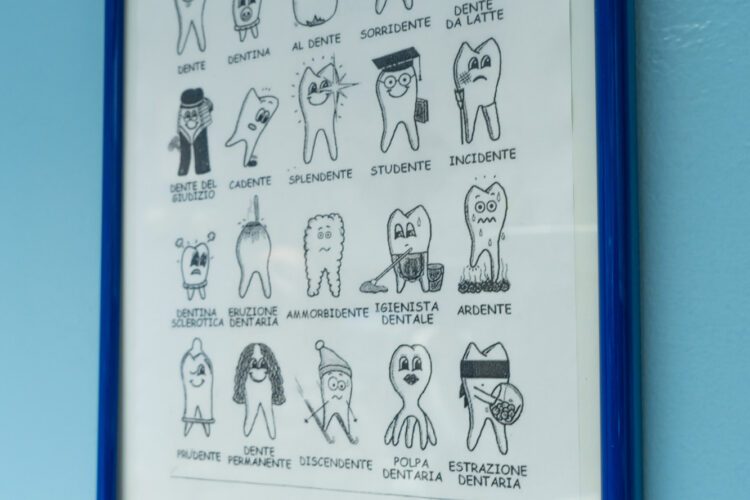 DENTE
DENTINA
AL DENTE
SORRIDENTE
DENTE
DA LATTE
DENTE DEL
GIUDIZIO
CADENTE
SPLENDENTE
STUDENTE
INCIDENTE
DENTINA
SCLEROTICA
ERUZIONE
DENTARIA
AMMORBIDENTE
IGIENISTA
DENTALE
ARDENTE
PRUDENTE
DENTE
PERMANENTE
DISCENDENTE
POLPA
DENTARIA
ESTRAZIONE
DENTARIA